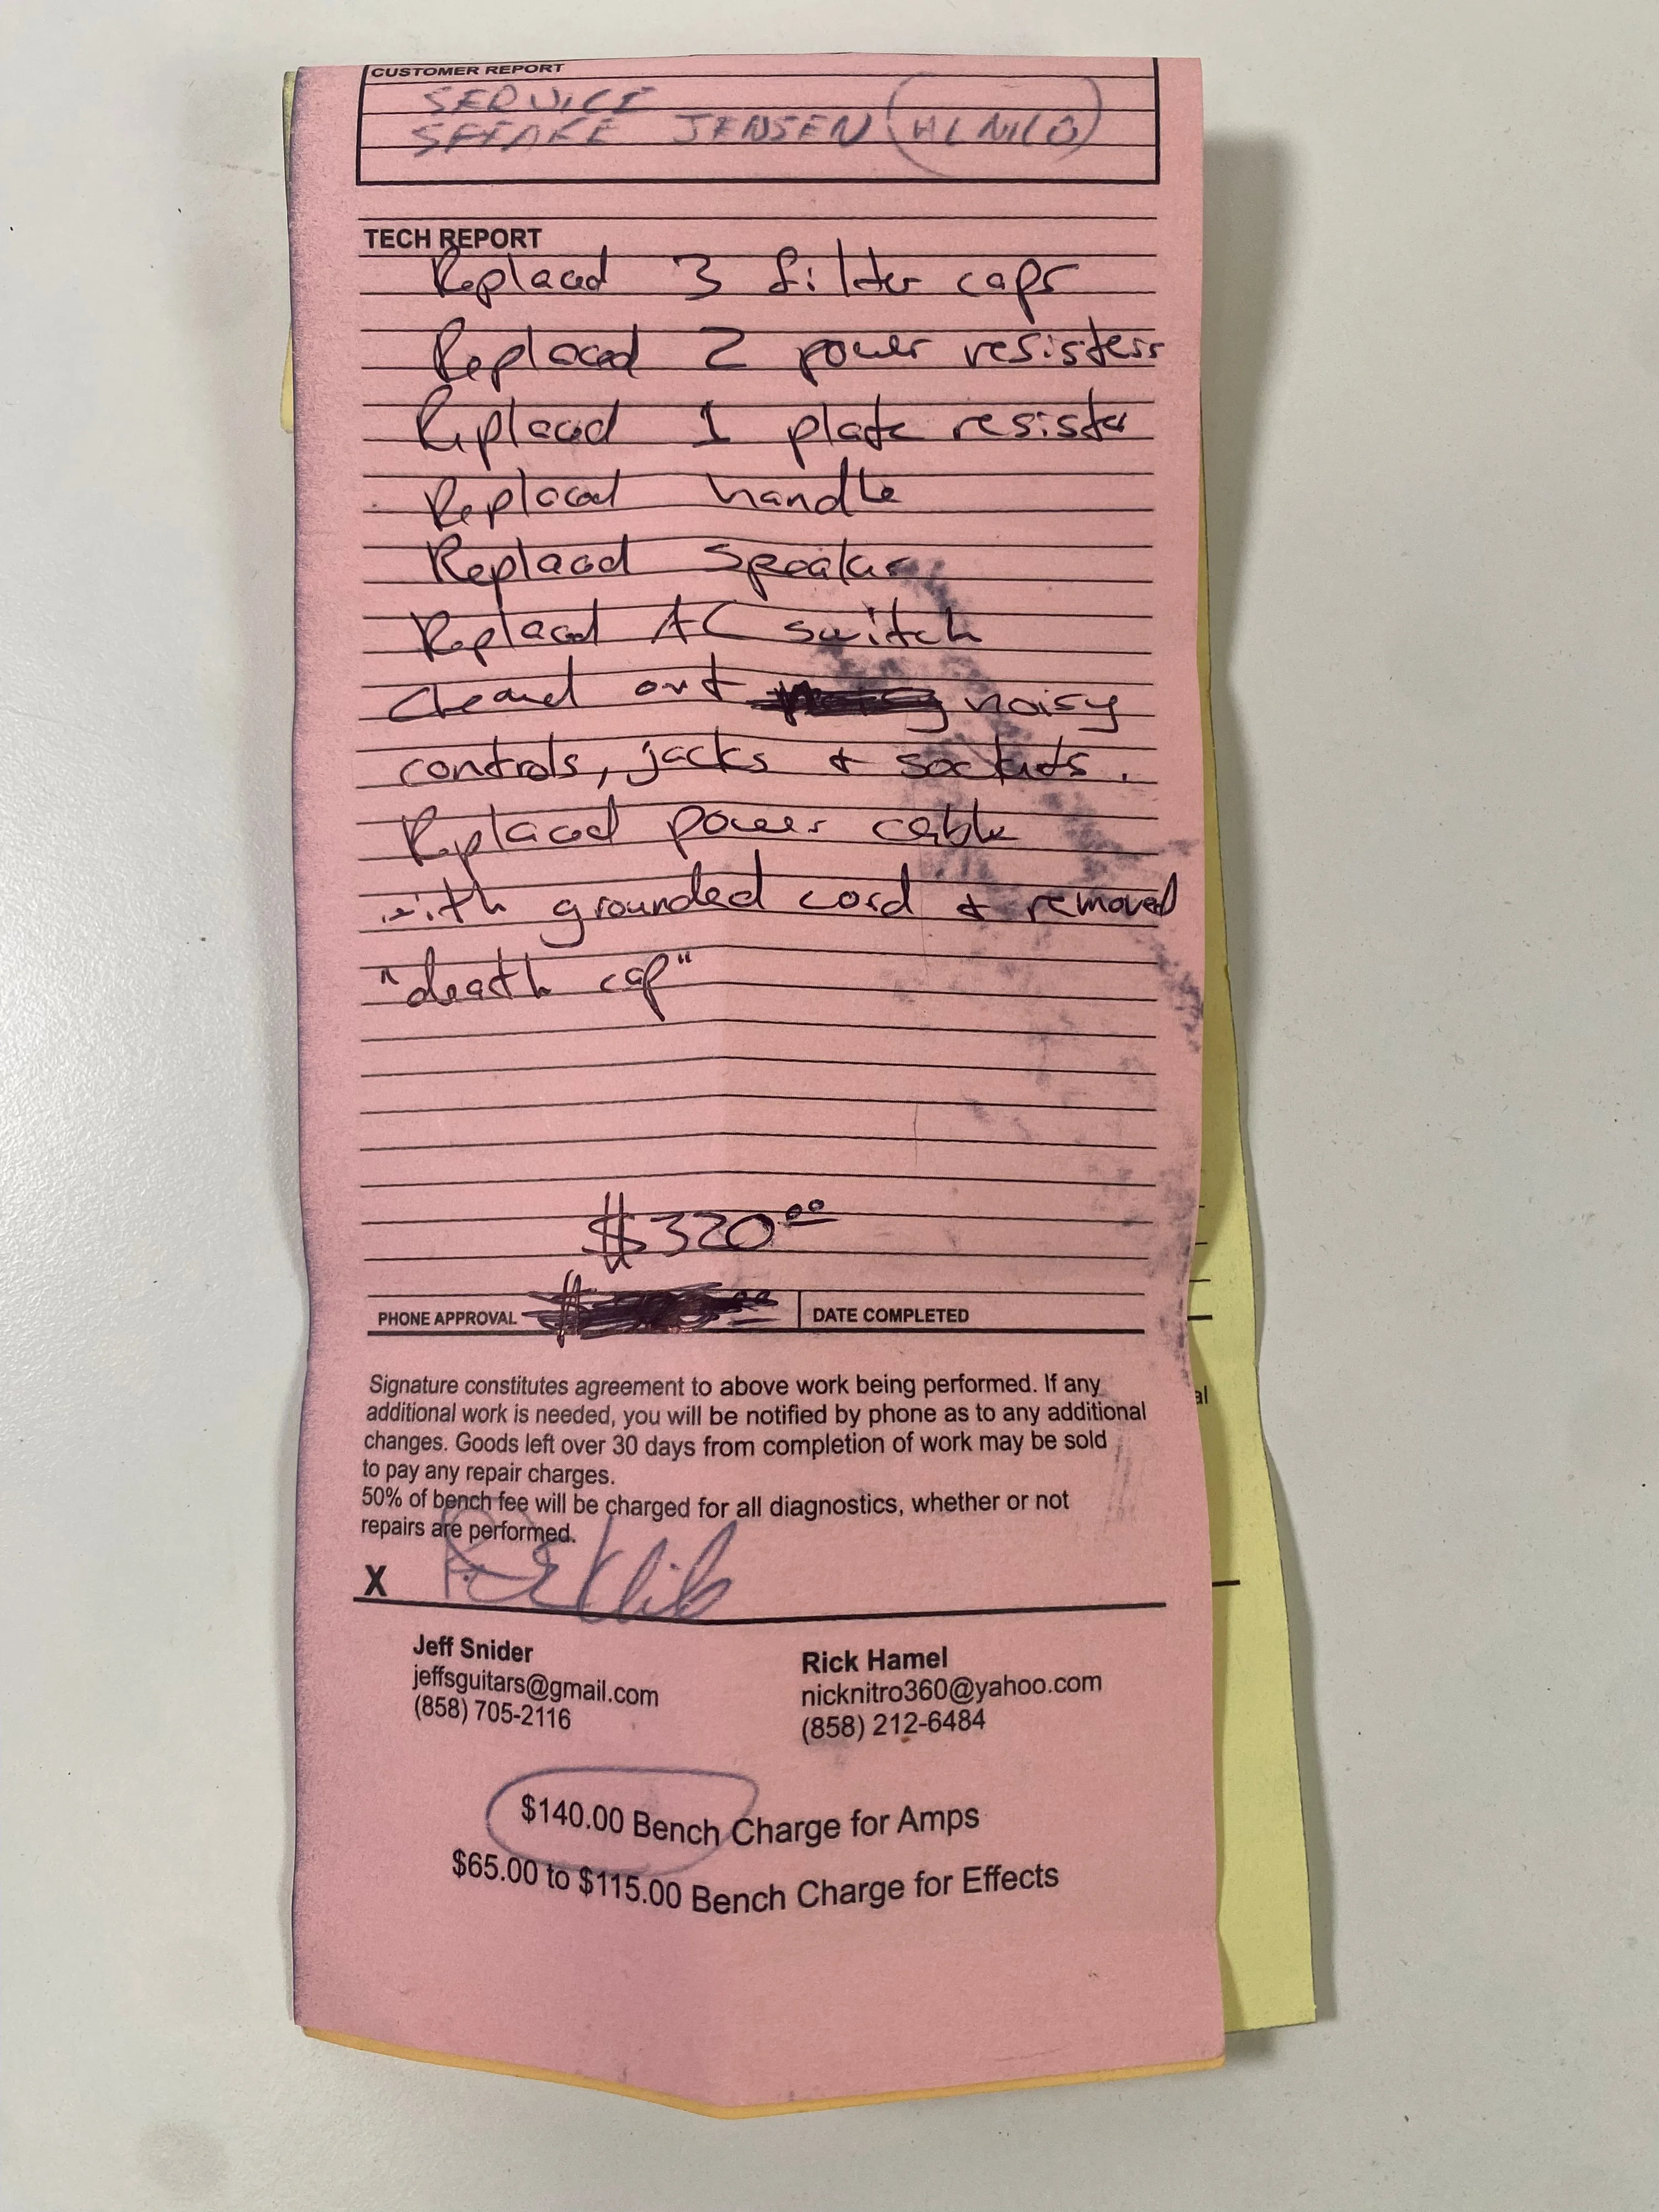 CUSTOMER REPORT
SERVICE
SPEAKE JENSEN (ALNICO)
TECH REPORT
Replaced 3 filter caps
Replaced 2 power resisters
Replaced 1 plate resister
Replaced handle
Replaced speaker
Replaced AC switch
cleaned out noisy
controls, jacks & sockets.
Replaced power cable
with grounded cord & removed
"death cap"
$320.00
PHONE APPROVAL $ DATE COMPLETED
Signature constitutes agreement to above work being performed. If any
additional work is needed, you will be notified by phone as to any additional
changes. Goods left over 30 days from completion of work may be sold
to pay any repair charges.
50% of bench fee will be charged for all diagnostics, whether or not
repairs are performed.
X
Jeff Snider Rick Hamel
jeffsguitars@gmail.com nicknitro360@yahoo.com
(858) 705-2116 (858) 212-6484
$140.00 Bench Charge for Amps
$65.00 to $115.00 Bench Charge for Effects
al